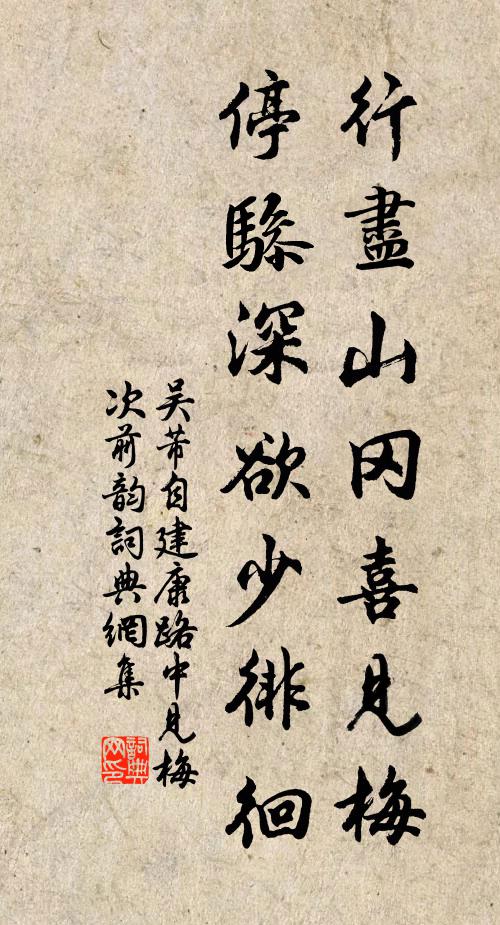 行盡山冈喜見梅
停驂深欲少徘徊
吴芾自建康路中見梅
次前韵詞典網集
詞典网印